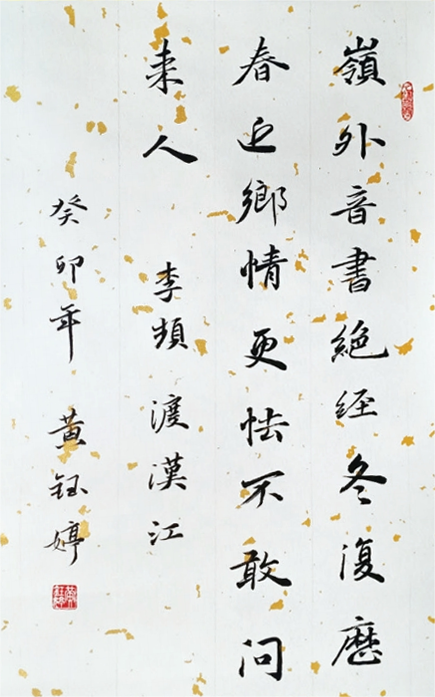 嶺外音書絶经冬復歷
春近鄉情更怯不敢问
来人 李頻 渡漢江
癸卯年 黄钰婷